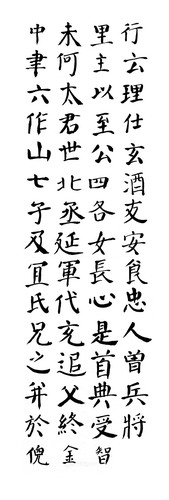 行云理仕玄酒支安食忠人曽兵將
里主以至公四各女長心是首典受智
未何太君世北丞延軍代充追父終金
中聿六作山七子及宜氏兄之并於倪